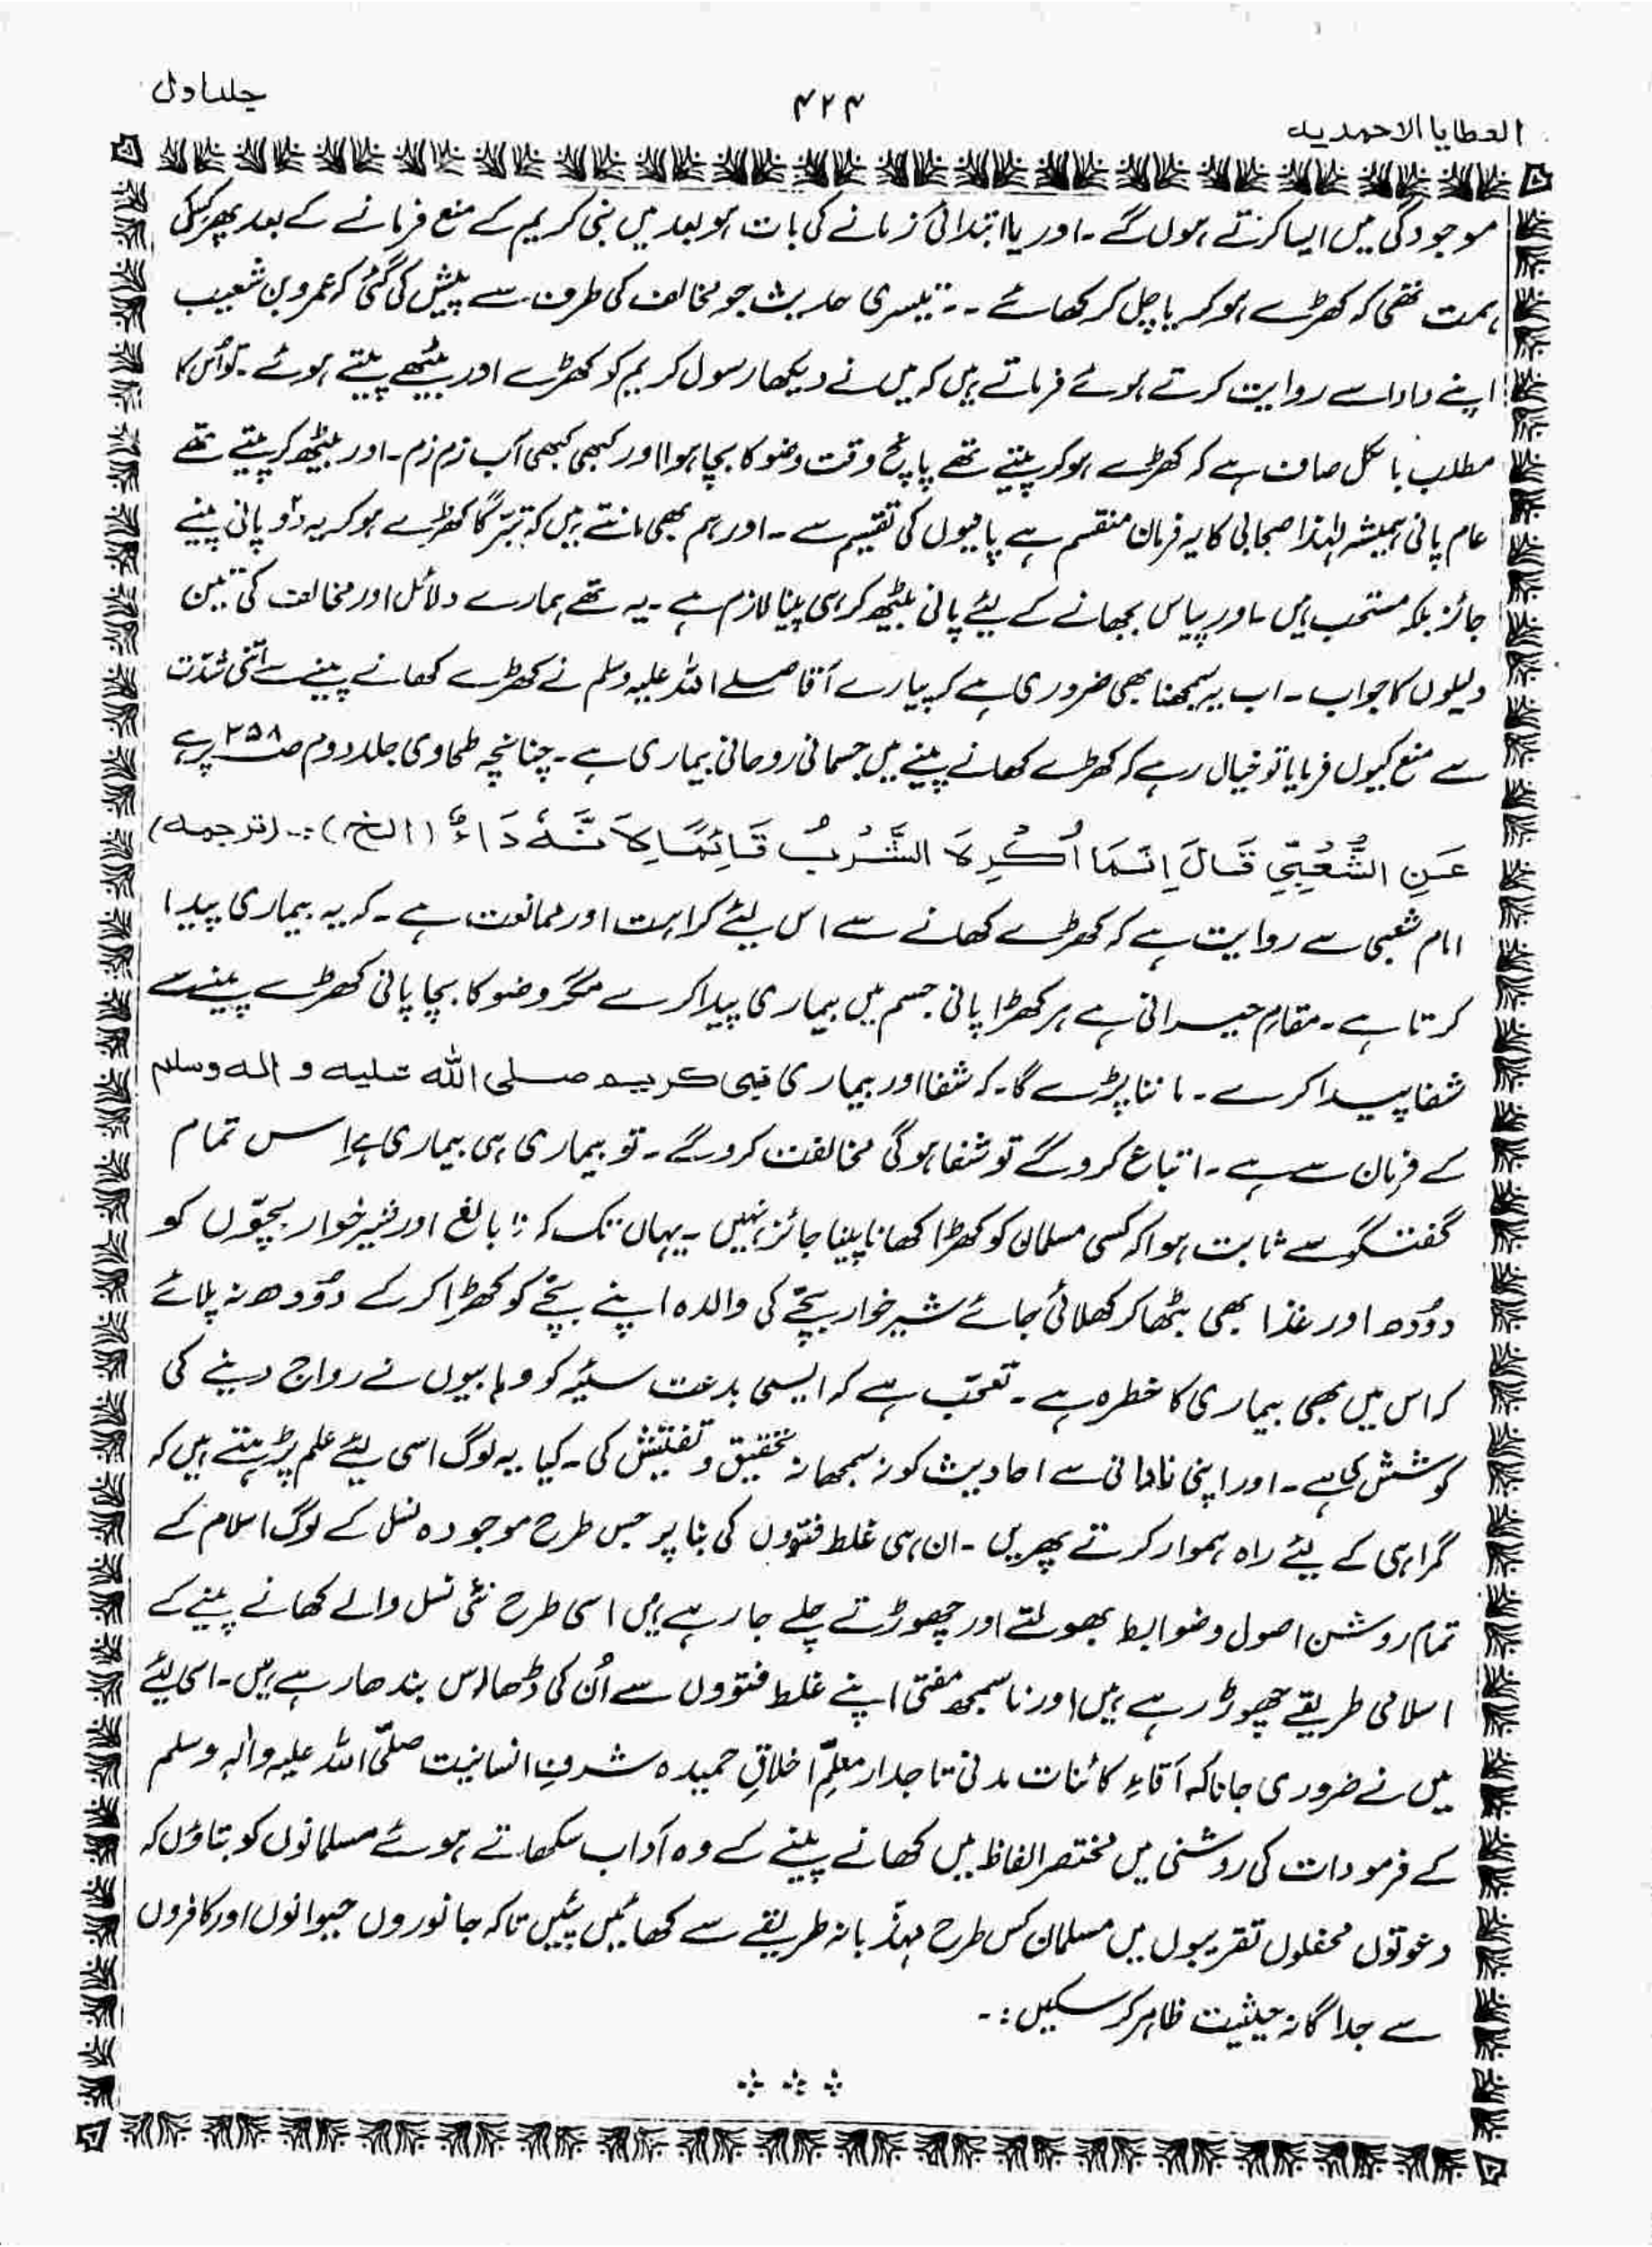 العطایا الاحمدیہ
۴۲۴
جلد اول
موجودگی میں ایسا کرتے ہوں گے ۔ اور یا ابتدائی زمانے کی بات ہو بعد میں نبی کریم کے منع فرمانے کے بعد پھر کس کی
ہمت تھی کہ کھڑے ہو کر یا چل کر کھائے ۔۔ تیسری حدیث جو مخالف کی طرف سے پیش کی گئی کہ عمرو بن شعیب
اپنے دادا سے روایت کرتے ہوئے فرماتے ہیں کہ میں نے دیکھا رسول کریم کو کھڑے اور بیٹھے پیتے ہوئے ۔ تو اُس کا
مطلب بالکل صاف ہے کہ کھڑے ہو کر پیتے تھے پانچ وقت وضو کا بچا ہوا اور کبھی کبھی آب زم زم ۔ اور بیٹھ کر پیتے تھے
عام پانی ہمیشہ لہٰذا صحابی کا یہ فرمان منقسم ہے پانیوں کی تقسیم سے ۔ اور ہم بھی مانتے ہیں کہ تبرّکاً کھڑے ہو کر یہ دو پانی پینے
جائز بلکہ مستحب ہیں ۔ اور پیاس بجھانے کے لیئے پانی بیٹھ کر ہی پینا لازم ہے ۔ یہ تھے ہمارے دلائل اور مخالف کی تین
دلیلوں کا جواب ۔ اب یہ سمجھنا بھی ضروری ہے کہ پیارے آقا صلے اللہ علیہ وسلم نے کھڑے کھانے پینے سے اتنی شدّت
سے منع کیوں فرمایا تو خیال رہے کہ کھڑے کھانے پینے میں جسمانی روحانی بیماری ہے ۔ چنانچہ طحاوی جلد دوم صـ ۲۵۸ پر ہے
عَنِ الشُّعْبِیِّ قَالَ اِنَّمَا اُکْرِہَ الشُّرْبُ قَائِمًا لِاَنَّہٗ دَاءٌ (الخ) :۔ (ترجمہ)
امام شعبی سے روایت ہے کہ کھڑے کھانے سے اس لیئے کراہت اور ممانعت ہے ۔ کہ یہ بیماری پیدا
کرتا ہے ۔ مقامِ حیرانی ہے ہر کھڑا پانی جسم میں بیماری پیدا کرے مگر وضو کا بچا پانی کھڑے پینے سے
شفا پیدا کرے ۔ ماننا پڑے گا ۔ کہ شفا اور بیماری نبی کریم صلی اللہ علیہ و الہ وسلم
کے فرمان سے ہے ۔ اتباع کرو گے تو شفا ہو گی مخالفت کرو گے ۔ تو بیماری ہی بیماری ہے اِس تمام
گفتگو سے ثابت ہوا کہ کسی مسلمان کو کھڑا کھانا پینا جائز نہیں ۔ یہاں تک کہ نابالغ اور شیر خوار بچّوں کو
دوُدھ اور غذا بھی بٹھا کر کھلائی جائے شیر خوار بچّے کی والدہ اپنے بچّے کو کھڑا کر کے دوُدھ نہ پلائے
کہ اس میں بھی بیماری کا خطرہ ہے ۔ تعجّب ہے کہ ایسی بدعت سیّئہ کو وہابیوں نے رواج دینے کی
کوشش کی ہے ۔ اور اپنی نادانی سے احادیث کو نہ سمجھا نہ تحقیق و تفتیش کی ۔ کیا یہ لوگ اسی لیئے علم پڑہتے ہیں کہ
گمراہی کے لیئے راہ ہموار کرتے پھریں ۔ ان ہی غلط فتووں کی بنا پر جس طرح موجودہ نسل کے لوگ اسلام کے
تمام روشن اصول و ضوابط بھولتے اور چھوڑتے چلے جا رہے ہیں اسی طرح نئی نسل والے کھانے پینے کے
اسلامی طریقے چھوڑ رہے ہیں اور ناسمجھ مفتی اپنے غلط فتووں سے اُن کی ڈھارس بندھا رہے ہیں ۔ اسی لیئے
میں نے ضروری جانا کہ آقاءِ کائنات مدنی تاجدار معلِّم اخلاقِ حمیدہ شرفِ انسانیت صلّی اللہ علیہ والہٖ وسلم
کے فرمودات کی روشنی میں مختصر الفاظ میں کھانے پینے کے وہ آداب سکھاتے ہوئے مسلمانوں کو بتاؤں کہ
دعوتوں محفلوں تقریبوں میں مسلمان کس طرح مہذّبانہ طریقے سے کھائیں پئیں تاکہ جانوروں حیوانوں اور کافروں
سے جداگانہ حیثیت ظاہر کر سکیں :۔